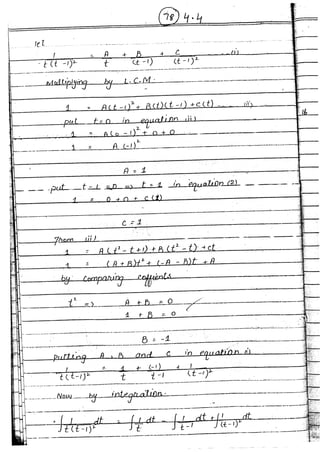 78 4.4
let
1 / t(t-1)² = A/t + B/(t-1) + C/(t-1)² (i)
Multiplying by L.C.M.
1 = A(t-1)² + B(t)(t-1) + c(t) (ii)
put t=0 in equation (ii)
1 = A(0-1)² + 0 + 0
1 = A(-1)²
A = 1
put t-1=0 => t=1 in equation (2)
1 = 0 + 0 + C(1)
C = 1
From (ii)
1 = A(t²-t+1) + B(t²-t) + ct
1 = (A+B)t² + (-A-B)t + A
by comparing coffients
t² => A + B = 0
1 + B = 0
B = -1
Putting A, B and C in equation i)
1 / t(t-1)² = 1/t + (-1)/(t-1) + 1/(t-1)²
Now by integration
∫ 1/t(t-1)² dt = ∫ 1/t dt - ∫ 1/(t-1) dt + ∫ 1/(t-1)² dt